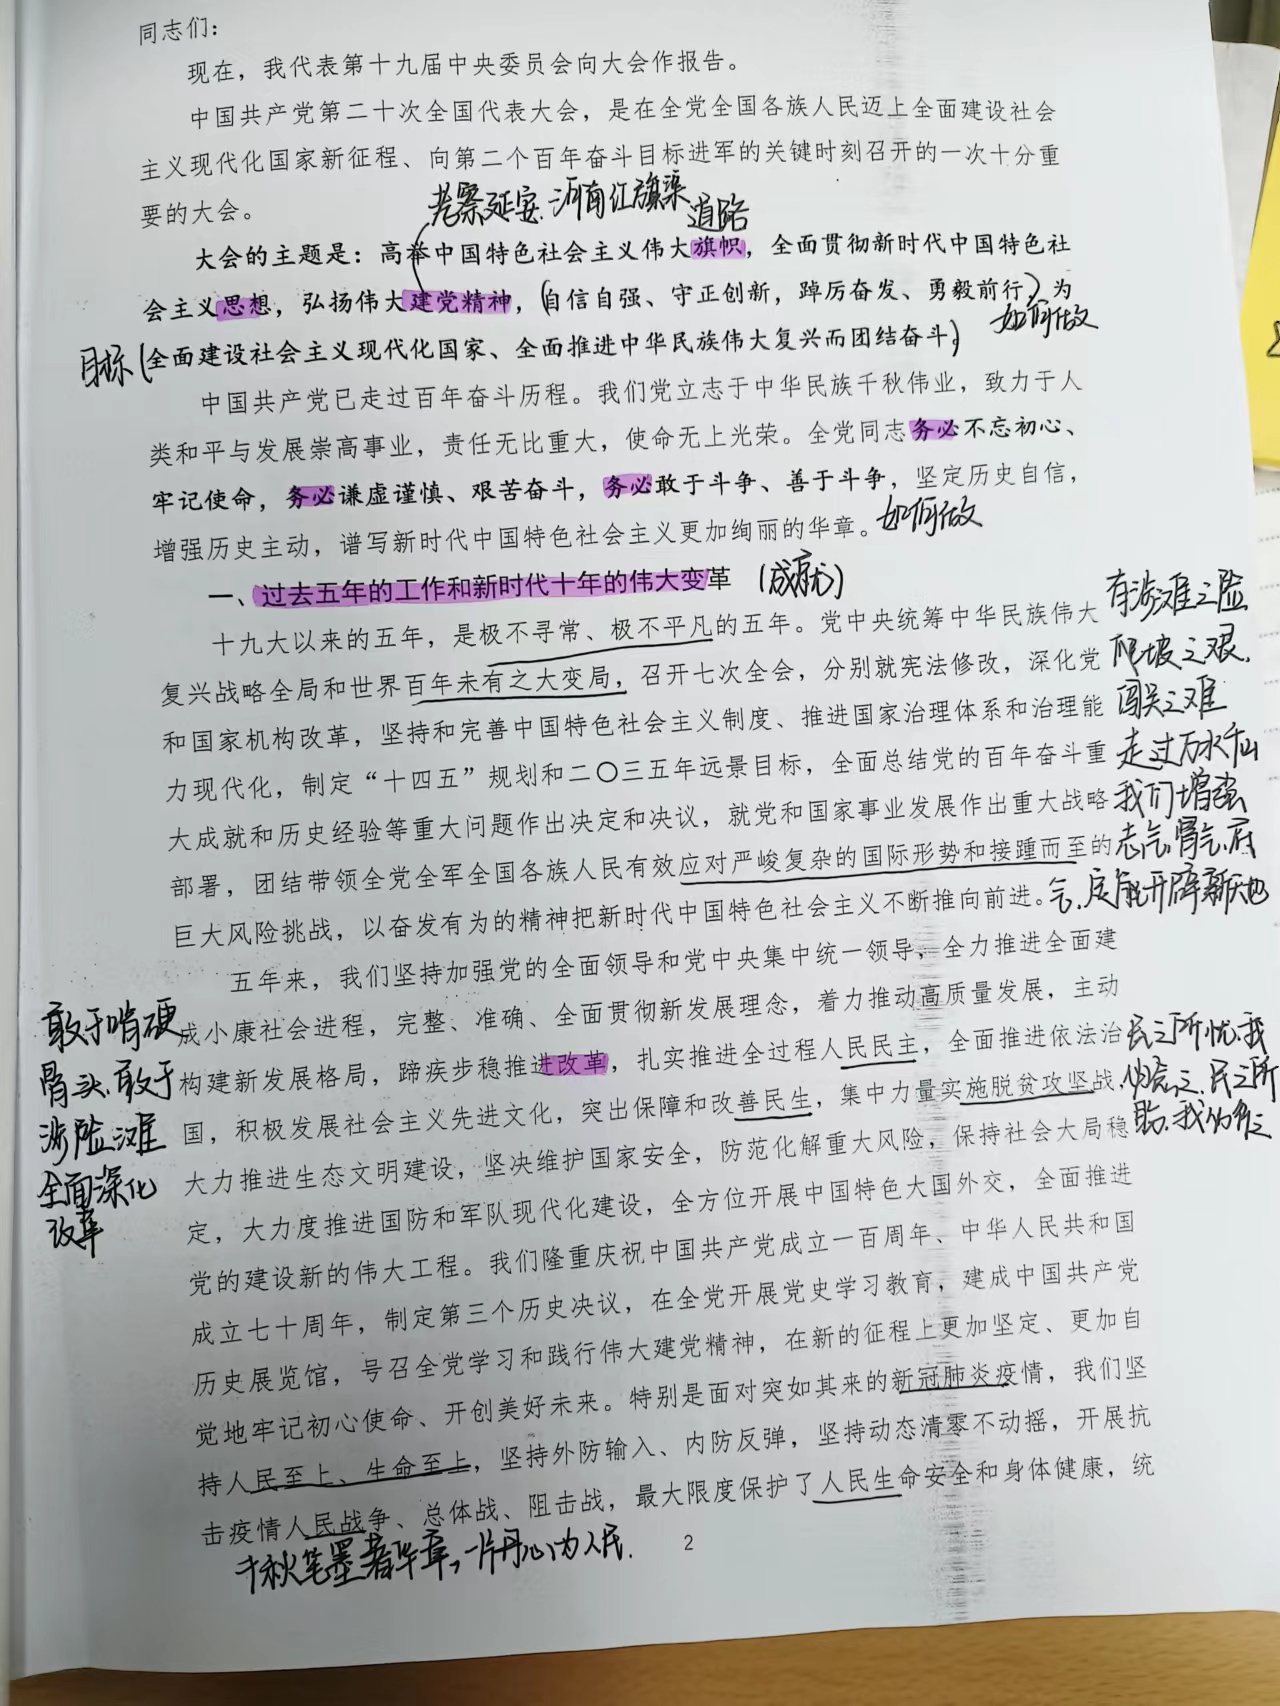 同志们：
现在，我代表第十九届中央委员会向大会作报告。
中国共产党第二十次全国代表大会，是在全党全国各族人民迈上全面建设社会
主义现代化国家新征程、向第二个百年奋斗目标进军的关键时刻召开的一次十分重
要的大会。
考察延安、河南红旗渠
道路
大会的主题是：高举中国特色社会主义伟大旗帜，全面贯彻新时代中国特色社
会主义思想，弘扬伟大建党精神，（自信自强、守正创新，踔厉奋发、勇毅前行），为
如何做
目标（全面建设社会主义现代化国家、全面推进中华民族伟大复兴而团结奋斗）
中国共产党已走过百年奋斗历程。我们党立志于中华民族千秋伟业，致力于人
类和平与发展崇高事业，责任无比重大，使命无上光荣。全党同志务必不忘初心、
牢记使命，务必谦虚谨慎、艰苦奋斗，务必敢于斗争、善于斗争，坚定历史自信，
增强历史主动，谱写新时代中国特色社会主义更加绚丽的华章。如何做
一、过去五年的工作和新时代十年的伟大变革（成就）
十九大以来的五年，是极不寻常、极不平凡的五年。党中央统筹中华民族伟大
复兴战略全局和世界百年未有之大变局，召开七次全会，分别就宪法修改，深化党
和国家机构改革，坚持和完善中国特色社会主义制度、推进国家治理体系和治理能
力现代化，制定“十四五”规划和二〇三五年远景目标，全面总结党的百年奋斗重
大成就和历史经验等重大问题作出决定和决议，就党和国家事业发展作出重大战略
部署，团结带领全党全军全国各族人民有效应对严峻复杂的国际形势和接踵而至的
巨大风险挑战，以奋发有为的精神把新时代中国特色社会主义不断推向前进。
有涉滩之险
爬坡之艰，
闯关之难
走过万水千山
我们增强
志气、骨气、底
气，定能开辟新天地
五年来，我们坚持加强党的全面领导和党中央集中统一领导，全力推进全面建
成小康社会进程，完整、准确、全面贯彻新发展理念，着力推动高质量发展，主动
构建新发展格局，蹄疾步稳推进改革，扎实推进全过程人民民主，全面推进依法治
国，积极发展社会主义先进文化，突出保障和改善民生，集中力量实施脱贫攻坚战，
大力推进生态文明建设，坚决维护国家安全，防范化解重大风险，保持社会大局稳
定，大力度推进国防和军队现代化建设，全方位开展中国特色大国外交，全面推进
党的建设新的伟大工程。我们隆重庆祝中国共产党成立一百周年、中华人民共和国
成立七十周年，制定第三个历史决议，在全党开展党史学习教育，建成中国共产党
历史展览馆，号召全党学习和践行伟大建党精神，在新的征程上更加坚定、更加自
觉地牢记初心使命、开创美好未来。特别是面对突如其来的新冠肺炎疫情，我们坚
持人民至上、生命至上，坚持外防输入、内防反弹，坚持动态清零不动摇，开展抗
击疫情人民战争、总体战、阻击战，最大限度保护了人民生命安全和身体健康，统
敢于啃硬
骨头、敢于
涉险滩
全面深化
改革
民之所忧，我
必念之、民之所
盼，我必行之
千秋笔墨著华章，一片丹心为人民.
2